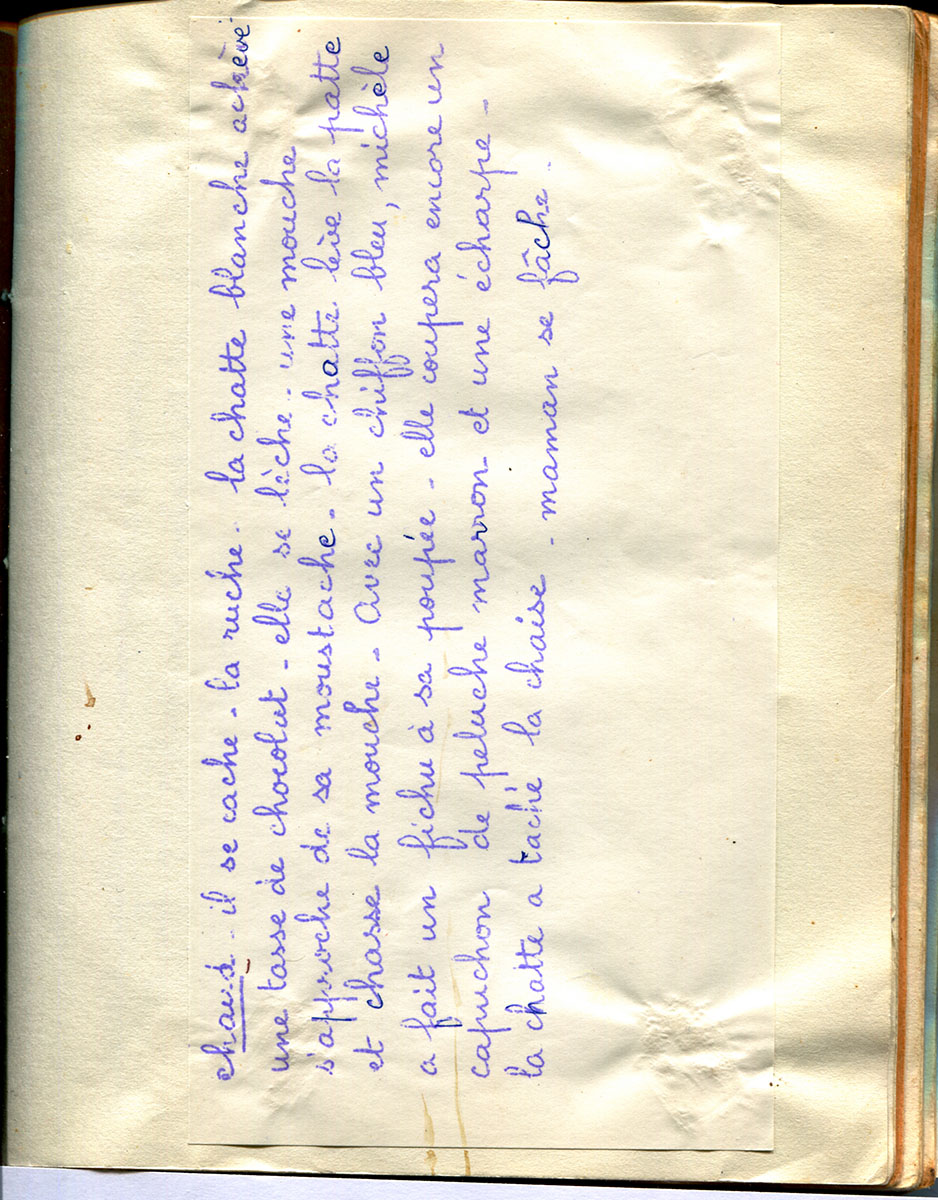 il se cache - la ruche - la chatte blanche achève
une tasse de chocolat - elle se lèche - une mouche
s'approche de sa moustache - la chatte lève la patte
et chasse la mouche - Avec un chiffon bleu, michèle
a fait un fichu à sa poupée - elle coupera encore un
capuchon de peluche marron - et une écharpe -
la chatte a taché la chaise - maman se fâche -